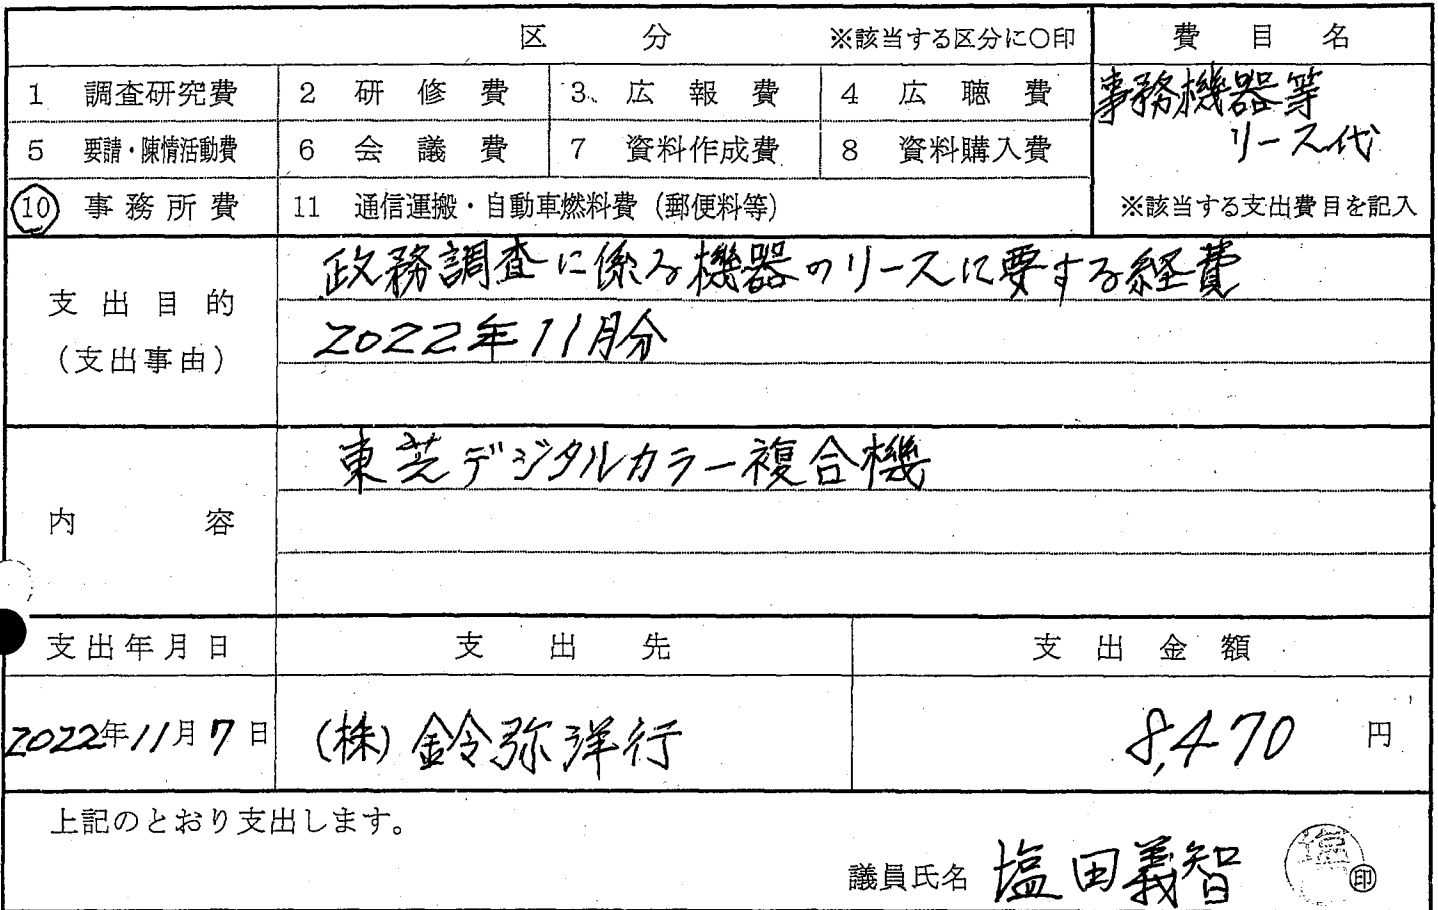 区 分 ※該当する区分に○印 費目名
1 調査研究費 2 研修費 3 広報費 4 広聴費 事務機器等
5 要請・陳情活動費 6 会議費 7 資料作成費 8 資料購入費 リース代
10 事務所費 11 通信運搬・自動車燃料費（郵便料等） ※該当する支出費目を記入
政務調査に係る機器のリースに要する経費
支出目的
2022年11月分
（支出事由）
東芝デジタルカラー複合機
内容
支出年月日 支出先 支出金額
2022年11月7日 (株)鈴弥洋行 8,470 円
上記のとおり支出します。
議員氏名 塩田義智 塩 印